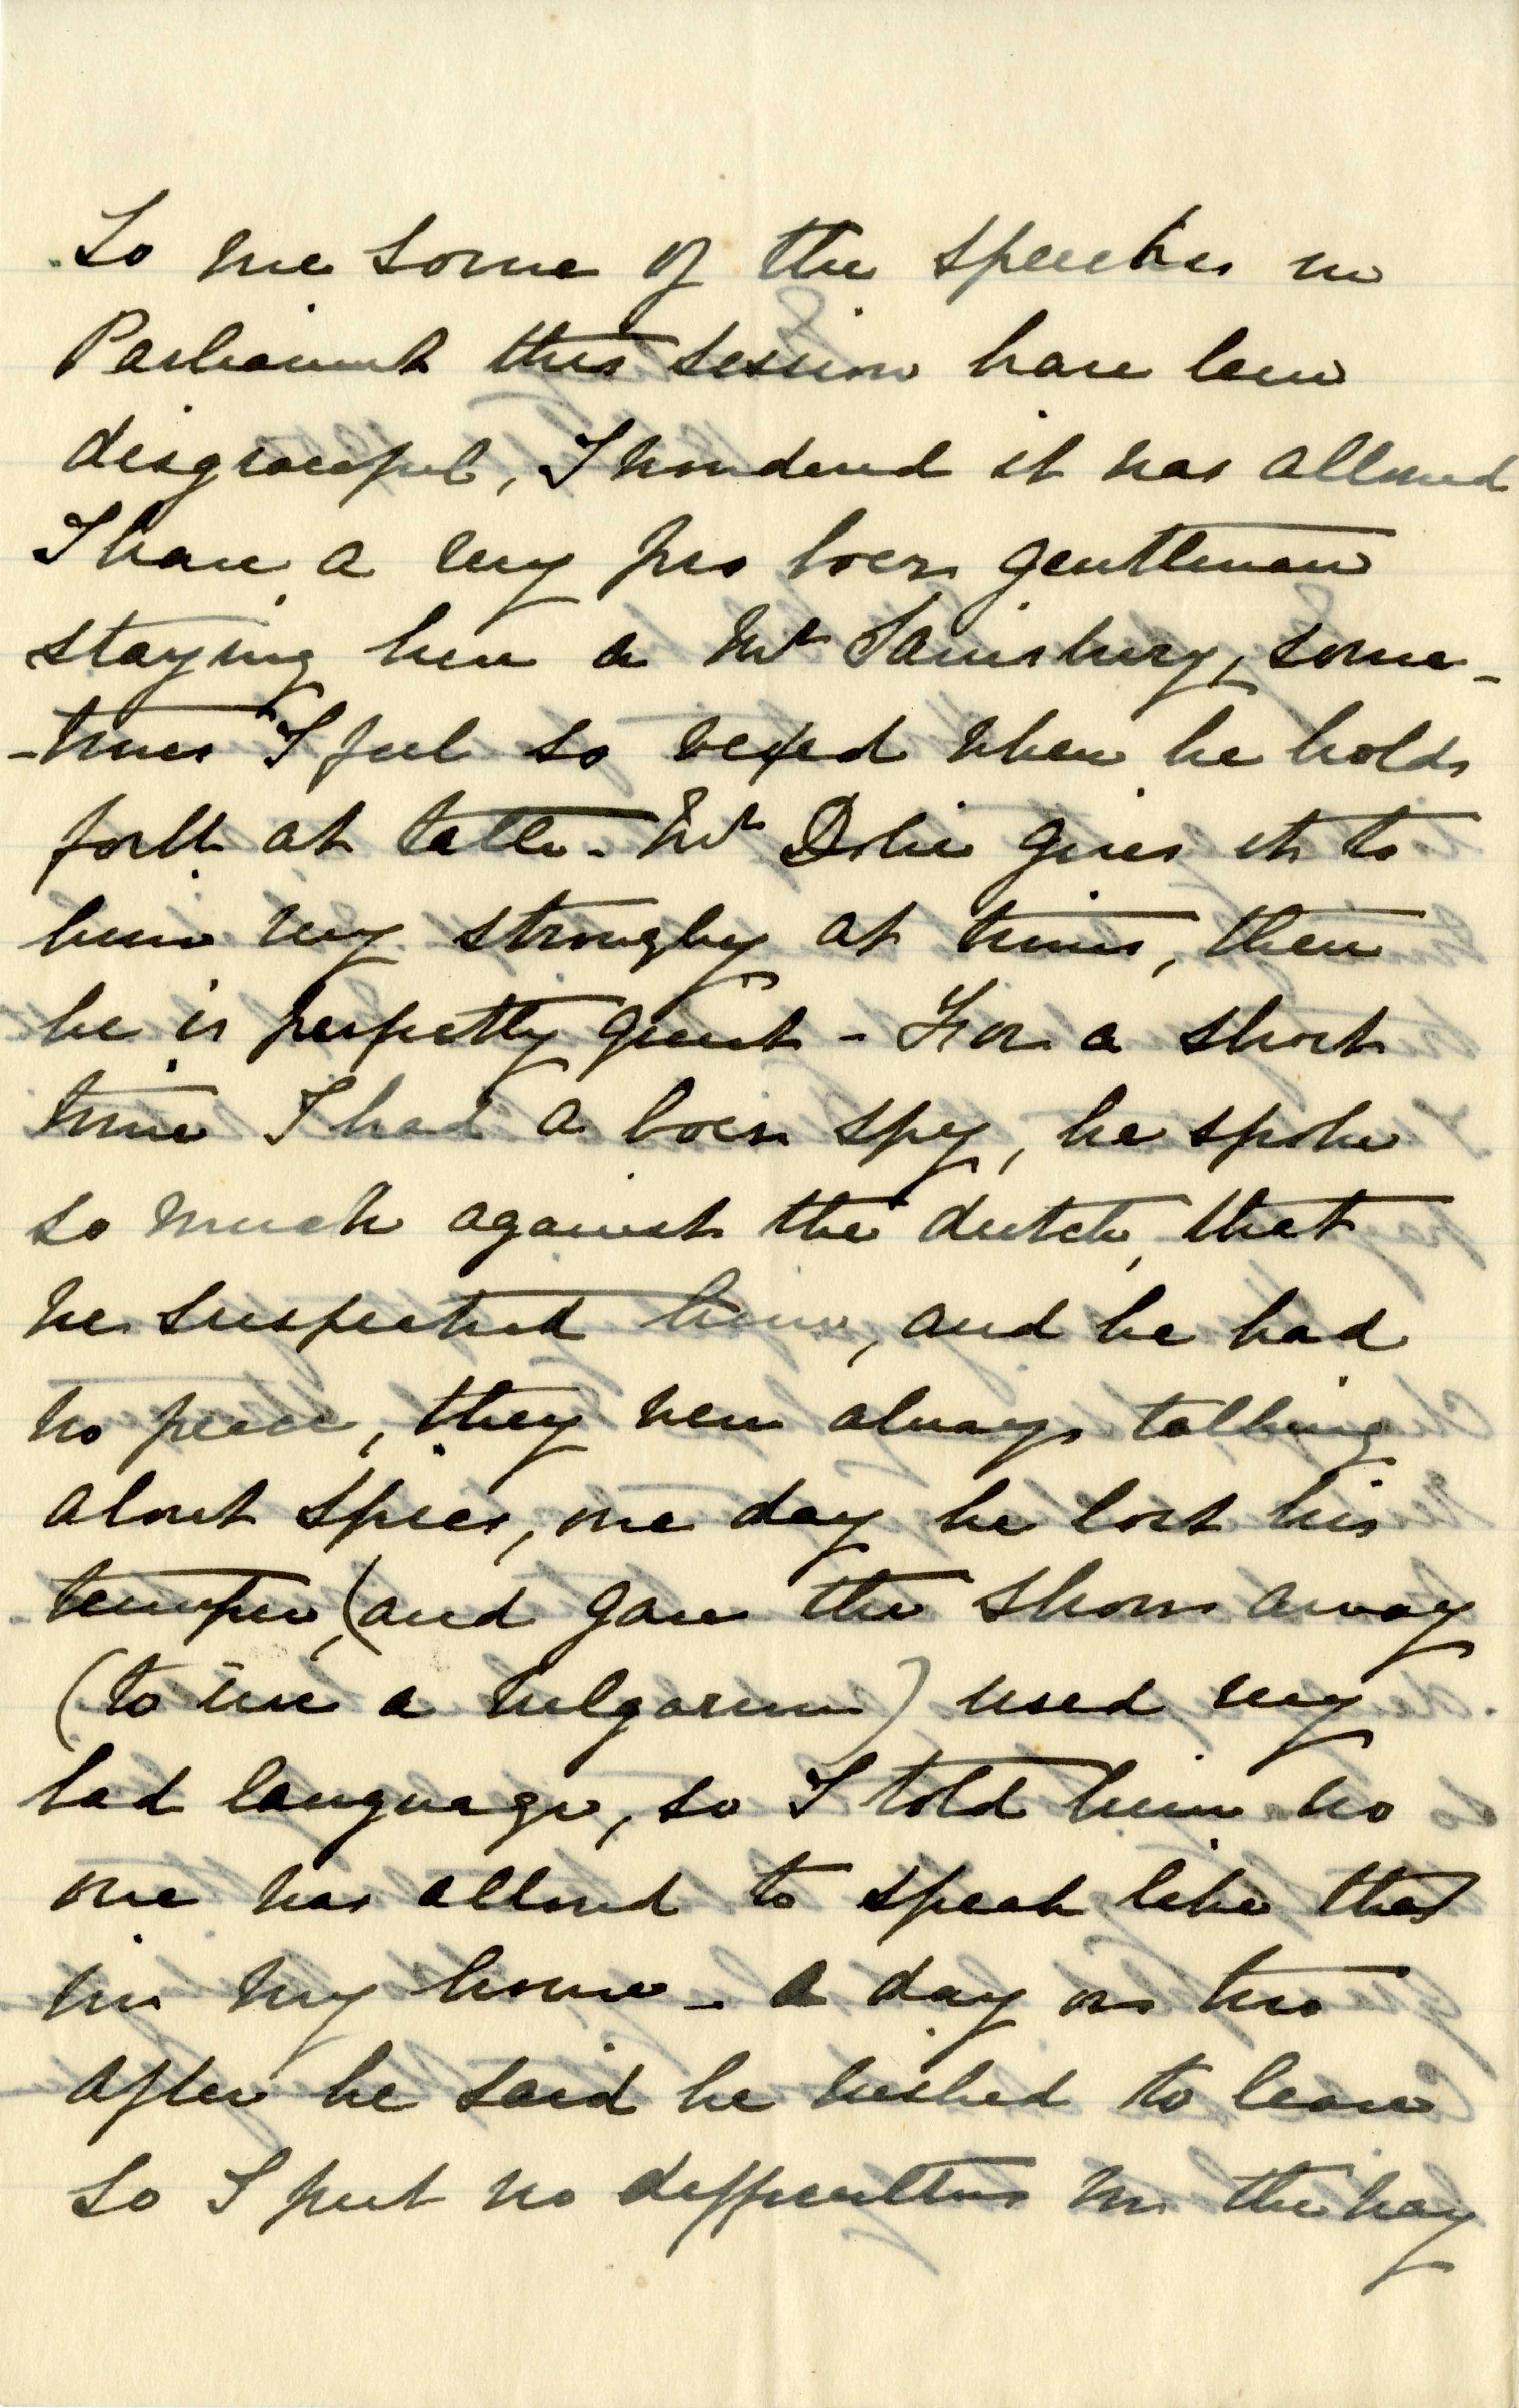 To me some of the speeches in
Parliament this session have been
disgraceful, I wondered it was allowed
I have a very pro boer gentleman
staying here a Mr Sainsbury, some-
-times I feel so vexed when he holds
forth at table - Mr Dolie gives it to
him very strongly at times, then
he is perfectly quiet - For a short
time I had a boer spy, he spoke
so much against the dutch, that
we suspected him, and he had
no peace, they were always talking
about spies, one day he lost his
temper, (and gave the show away
(to use a vulgarism) used very
bad language, so I told him no
one was allowed to speak like that
in my house - a day or two
after he said he wished to leave
so I put no difficulties in the way